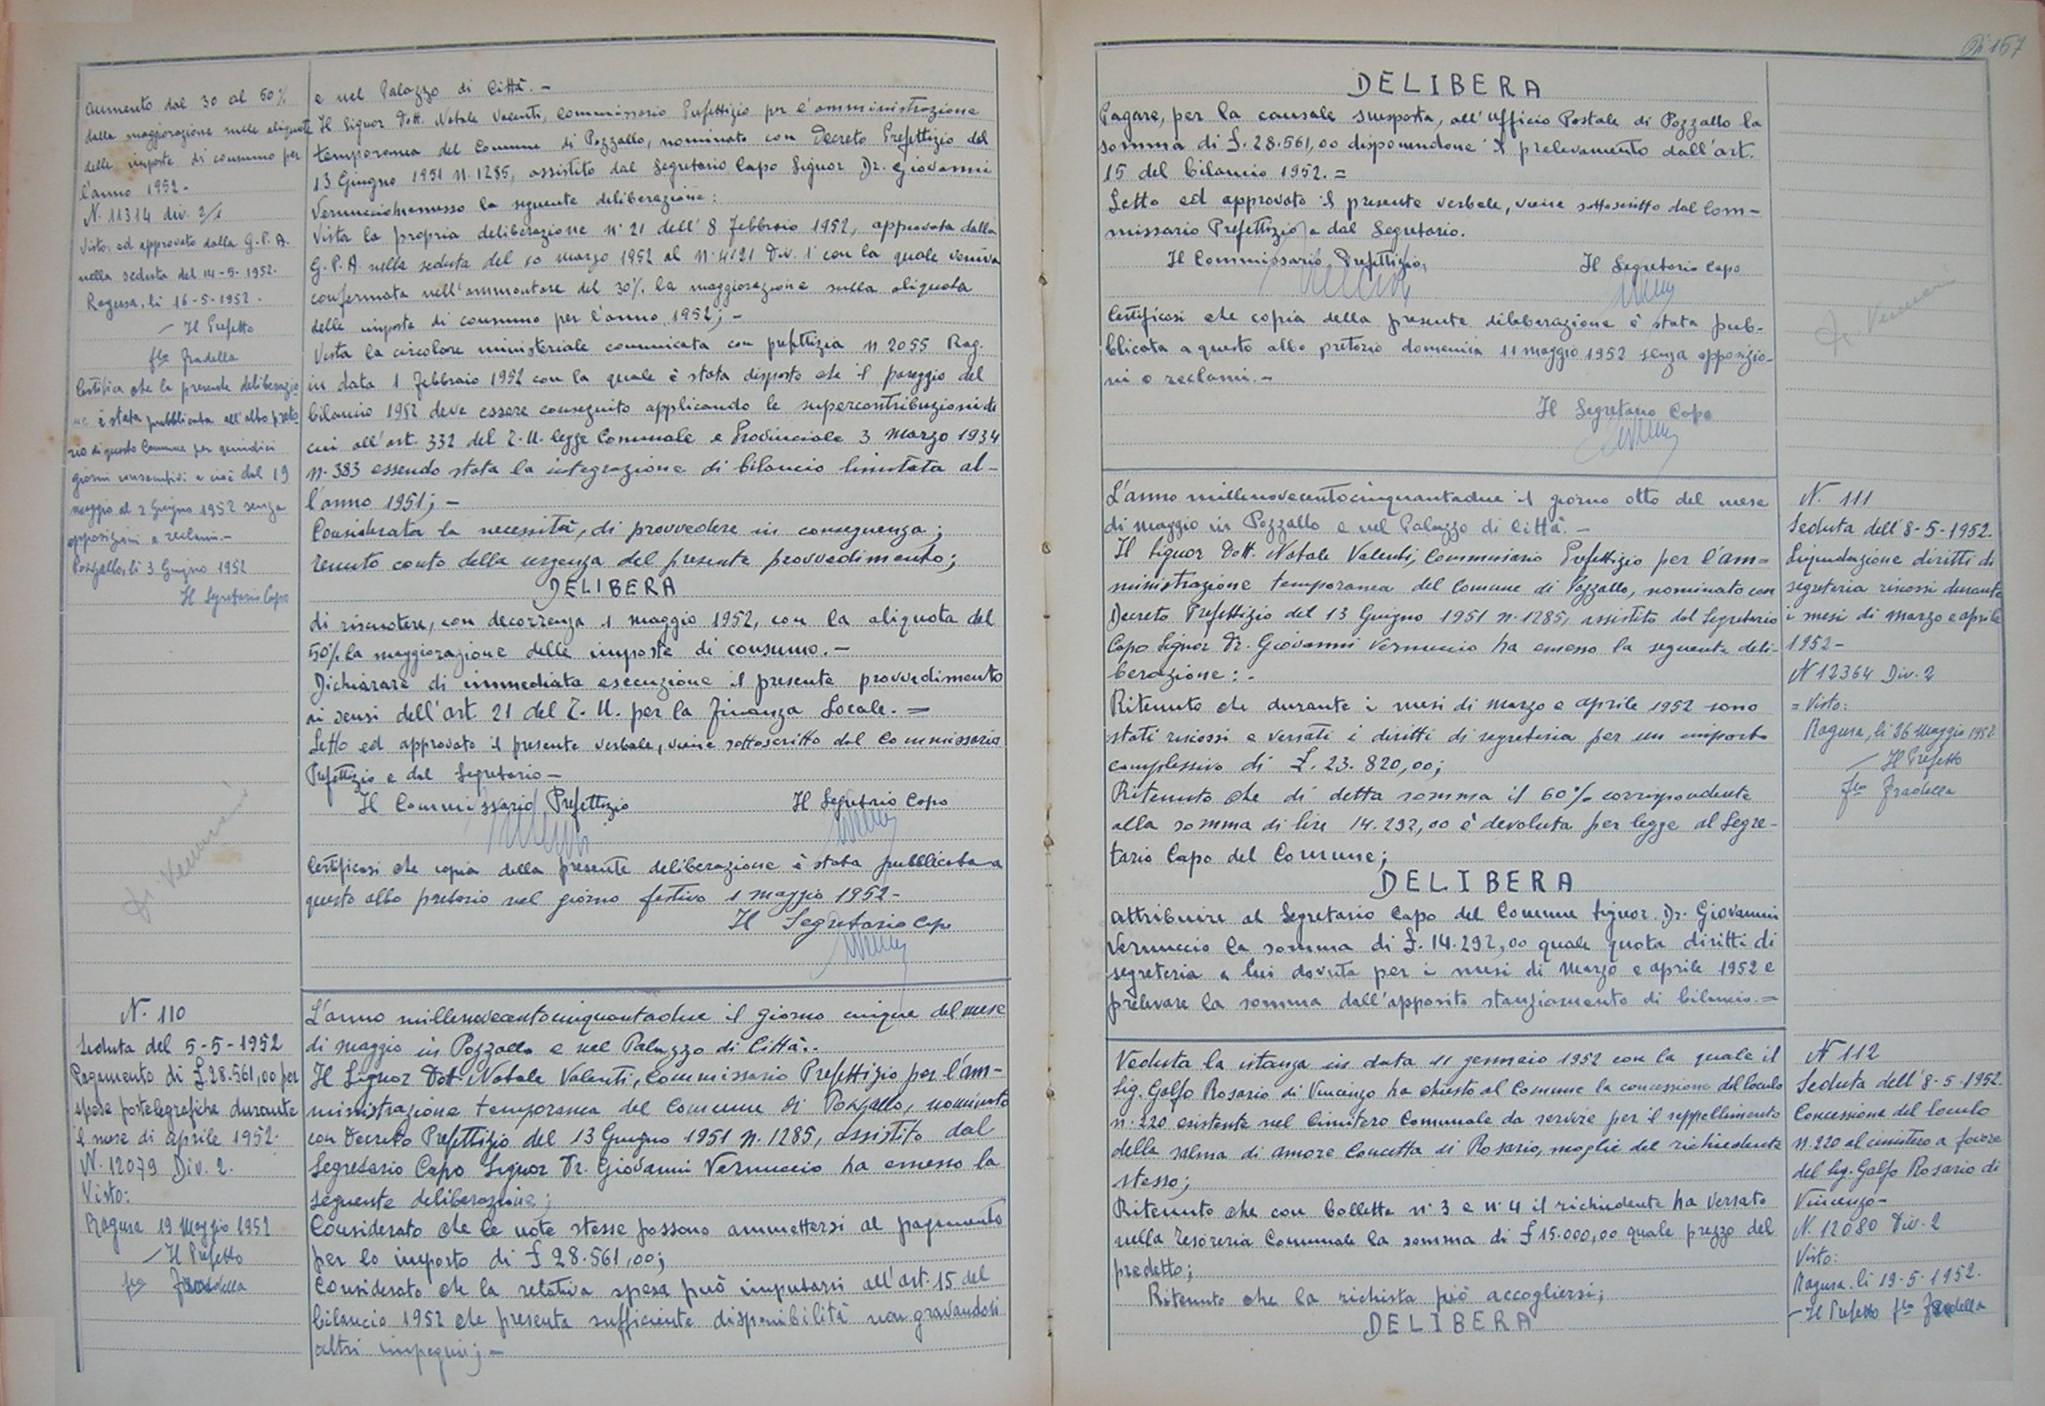 Aumento dal 30 al 50%
della maggiorazione sulle aliquote
delle imposte di consumo per
l'anno 1952-
N. 11314 div. 2/1
Visto, ed approvato dalla G.P.A.
nella seduta del 14-5-1952.
Ragusa, li 16-5-1952.
Il Prefetto
fto Fradella
Certifica che la presente deliberazio-
ne è stata pubblicata all'albo preto-
rio di questo Comune per quindici
giorni consecutivi e cioè dal 19
maggio al 2 Giugno 1952 senza
opposizioni o reclami.-
Pozzallo, li 3 Giugno 1952
Il Segretario Capo
e nel Palazzo di Città.-
Il Signor Dott. Natale Valenti, Commissario Prefettizio per l'amministrazione
temporanea del Comune di Pozzallo, nominato con Decreto Prefettizio del
13 Giugno 1951 N. 1285, assistito dal Segretario Capo Signor Dr. Giovanni
Vernuccio emesso la seguente deliberazione:
Vista la propria deliberazione n° 21 dell' 8 Febbraio 1952, approvata dalla
G.P.A nella seduta del 10 marzo 1952 al N. 4121 Div. 1ª con la quale veniva
confermata nell'ammontare del 30% la maggiorazione sulla aliquota
delle imposte di consumo per l'anno 1952;-
Vista la circolare ministeriale comunicata con prefettizia n 2055 Rag.
in data 1 Febbraio 1952 con la quale è stata disposto che il pareggio del
bilancio 1952 deve essere conseguito applicando le supercontribuzioni di
cui all'art. 332 del T.U. legge Comunale e Provinciale 3 Marzo 1934
n. 383 essendo stata la integrazione di bilancio limitata al-
l'anno 1951;-
Considerata la necessità, di provvedere in conseguenza;
Tenuto conto della urgenza del presente provvedimento;
DELIBERA
di riscuotere, con decorrenza 1 maggio 1952, con la aliquota del
50% la maggiorazione delle imposte di consumo.-
Dichiarare di immediata esecuzione il presente provvedimento
ai sensi dell'art. 21 del T.U. per la Finanza Locale.=
Letto ed approvato il presente verbale, viene sottoscritto dal Commissario
Prefettizio e dal Segretario-
Il Commissario Prefettizio Il Segretario Capo
Certificasi che copia della presente deliberazione è stata pubblicata a
questo albo pretorio nel giorno festivo 1 maggio 1952-
Il Segretario Capo
Dr. Vernuccio
N. 110
Seduta del 5-5-1952
Pagamento di £ 28.561,00 per
spese postelegrafiche durante
il mese di Aprile 1952.
N. 12079 Div. 2.
Visto:
Ragusa 19 Maggio 1952
Il Prefetto
fto Fradella
L'anno millenovecentocinquantadue il giorno cinque del mese
di maggio in Pozzallo e nel Palazzo di Città.-
Il Signor Dot. Natale Valenti, Commissario Prefettizio per l'am-
ministrazione temporanea del Comune di Pozzallo, nominato
con Decreto Prefettizio del 13 Giugno 1951 N. 1285, assistito dal
Segretario Capo Signor Dr. Giovanni Vernuccio ha emesso la
seguente deliberazione;
Considerato che le note stesse possono ammettersi al pagamento
per lo importo di £ 28.561,00;
Considerato che la relativa spesa può imputarsi all'art. 15 del
bilancio 1952 che presenta sufficiente disponibilità non gravandosi
altri impegni;-
157
DELIBERA
Pagare, per la causale suesposta, all'Ufficio Postale di Pozzallo la
somma di £. 28.561,00 disponendone il prelevamento dall'art.
15 del bilancio 1952.=
Letto ed approvato il presente verbale, viene sottoscritto dal Com-
missario Prefettizio e dal Segretario.
Il Commissario Prefettizio, Il Segretario Capo
Certificasi che copia della presente diloberazione è stata pub-
blicata a questo albo pretorio domenica 11 maggio 1952 senza opposizio-
ni o reclami.-
Il Segretario Capo
Dr. Vernuccio
L'anno millenovecentocinquantadue il giorno otto del mese
di maggio in Pozzallo e nel Palazzo di Città-
Il Signor Dott. Natale Valenti, Commissario Prefettizio per l'am-
ministrazione temporanea del Comune di Pozzallo, nominato con
Decreto Prefettizio del 13 Giugno 1951 n. 1285, assistito dal Segretario
Capo Signor Dr. Giovanni Vernuccio ha emesso la seguente deli-
berazione:-
Ritenuto che durante i mesi di marzo e aprile 1952 sono
stati riscossi e versati i diritti di segreteria per un importo
complessivo di £. 23.820,00;
Ritenuto che di detta somma il 60% corrispondente
alla somma di lire 14.292,00 è devoluta per legge al Segre-
tario Capo del Comune;
DELIBERA
Attribuire al Segretario Capo del Comune Signor Dr. Giovanni
Vernuccio la somma di £. 14.292,00 quale quota diritti di
segreteria a lui dovuta per i mesi di Marzo e aprile 1952 e
prelevare la somma dall'apposito stanziamento di bilancio.=
N. 111
Seduta dell'8-5-1952.
Liquidazione diritti di
segreteria riscossi durante
i mesi di marzo e aprile
1952-
N 12364 Div. 2
= Visto:
Ragusa, li 26 Maggio 1952
Il Prefetto
fto Fradella
Veduta la istanza in data 11 gennaio 1952 con la quale il
Sig. Galfo Rosario di Vincenzo ha chiesto al Comune la concessione del loculo
n. 220 esistente nel Cimitero Comunale da servire per il seppellimento
della salma di Amore Concetta di Rosario, moglie del richiedente
stesso;
Ritenuto che con bollette n° 3 e n° 4 il richiedente ha versato
nella Tesoreria Comunale la somma di £ 15.000,00 quale prezzo del
predetto;
Ritenuto che la richista può accogliersi;
DELIBERA
N 112
Seduta dell'8-5-1952.
Concessione del loculo
n. 220 al cimitero a favore
del Sig. Galfo Rosario di
Vincenzo-
N. 12080 Div. 2
Visto:
Ragusa. li 19-5-1952.
Il Prefetto fto Fradella